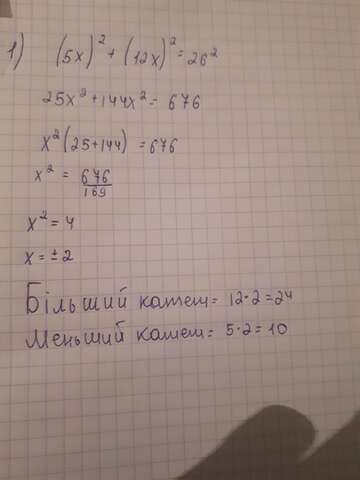 1) (5x)² + (12x)² = 26²
25x² + 144x² = 676
x² (25 + 144) = 676
x² = 676/169
x² = 4
x = ± 2
Більший катет = 12 · 2 = 24
Меньший катет = 5 · 2 = 10